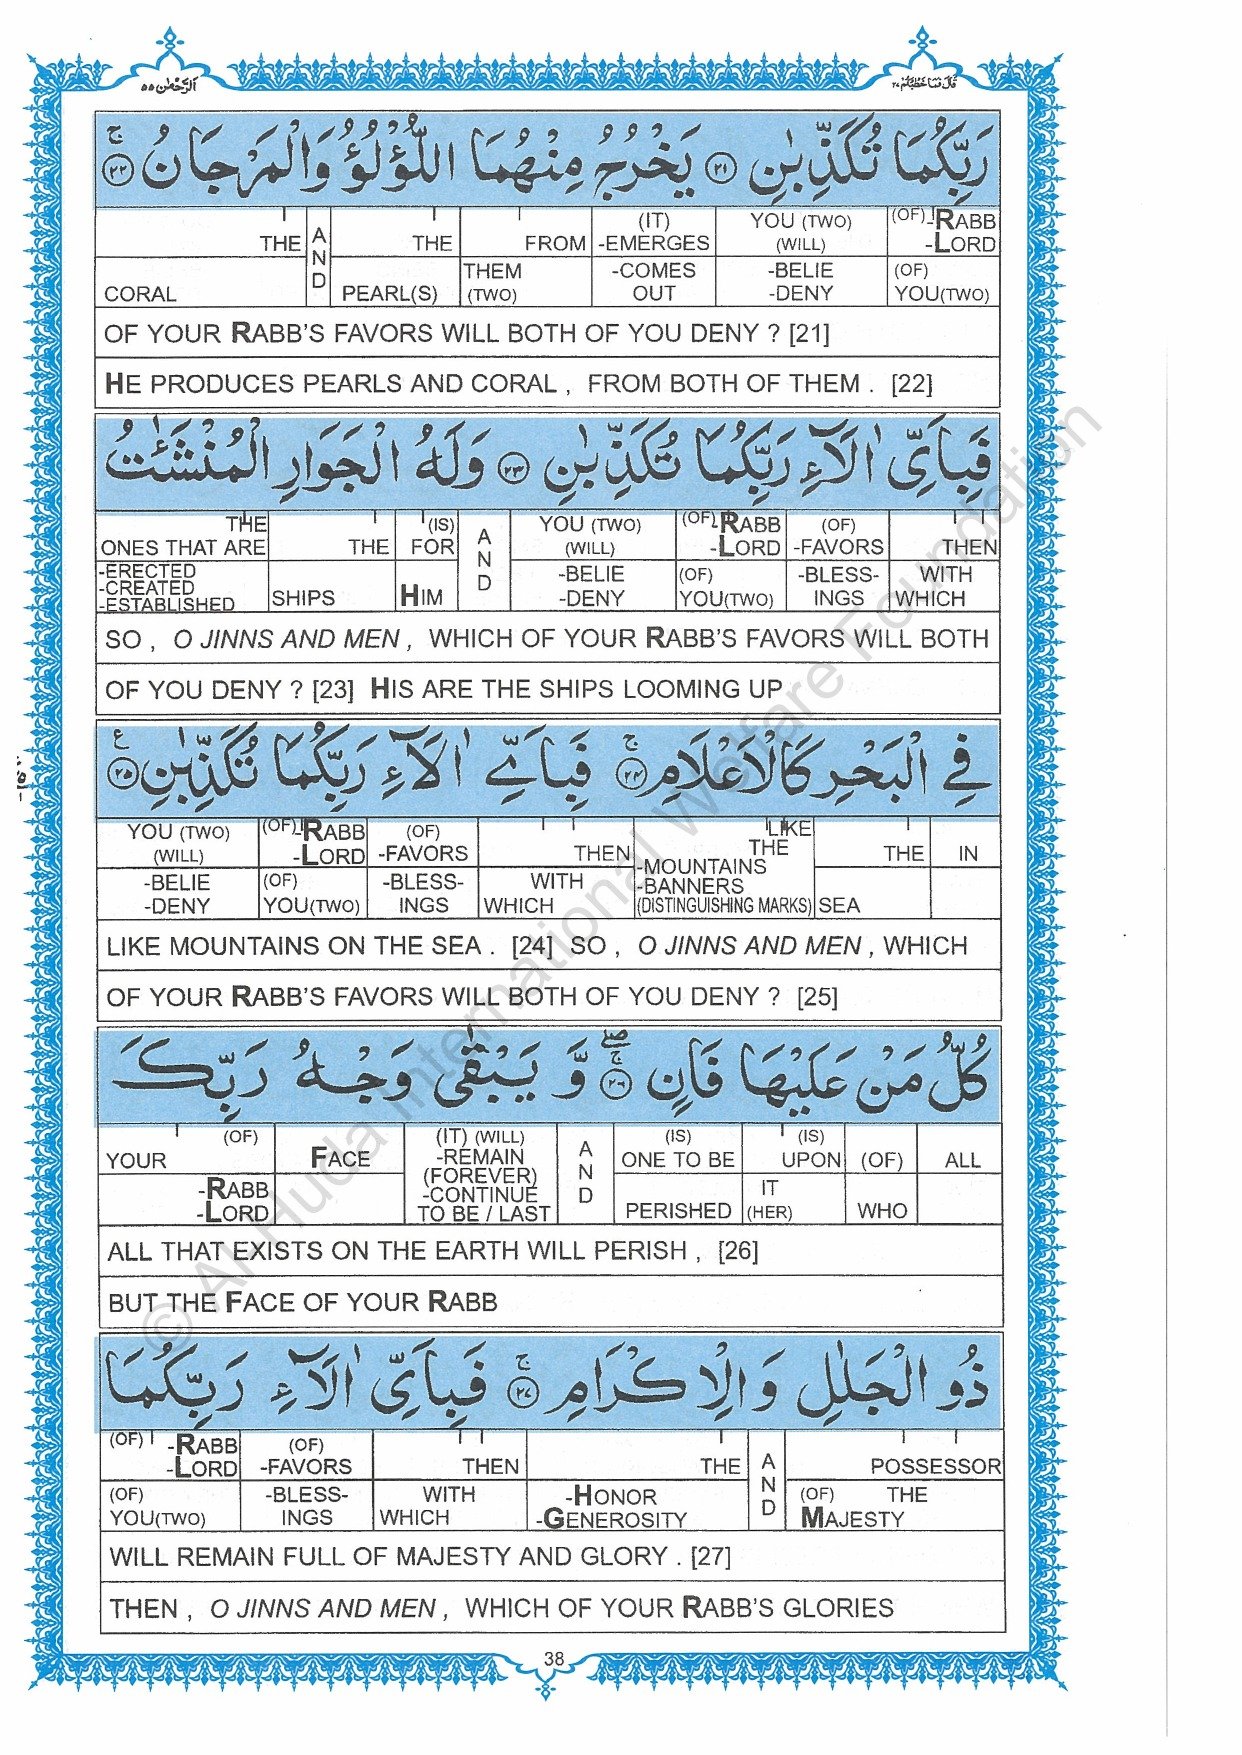 اَلرَّحْمٰن ٥٥
قَالَ فَمَا خَطْبُكُمْ ٢٧
رَبِّكُمَا تُكَذِّبٰنِ ٢١ يَخْرُجُ مِنْهُمَا اللُّؤْلُؤُ وَالْمَرْجَانُ ۚ ٢٢
THE AND THE FROM (IT) -EMERGES YOU (TWO) (WILL) (OF) -RABB -LORD
CORAL PEARL(S) THEM (TWO) -COMES OUT -BELIE -DENY (OF) YOU(TWO)
OF YOUR RABB'S FAVORS WILL BOTH OF YOU DENY ? [21]
HE PRODUCES PEARLS AND CORAL , FROM BOTH OF THEM . [22]
فَبِاَيِّ اٰلَآءِ رَبِّكُمَا تُكَذِّبٰنِ ٢٣ وَلَهُ الْجَوَارِ الْمُنْشَـٰٔتُ
THE ONES THAT ARE THE (IS) FOR AND YOU (TWO) (WILL) (OF) -RABB -LORD (OF) -FAVORS THEN
-ERECTED -CREATED -ESTABLISHED SHIPS HIM -BELIE -DENY (OF) YOU(TWO) -BLESS-INGS WITH WHICH
SO , O JINNS AND MEN , WHICH OF YOUR RABB'S FAVORS WILL BOTH
OF YOU DENY ? [23] HIS ARE THE SHIPS LOOMING UP
فِي الْبَحْرِ كَالْاَعْلَامِ ۚ ٢٤ فَبِاَيِّ اٰلَآءِ رَبِّكُمَا تُكَذِّبٰنِ ٢٥ ع
YOU (TWO) (WILL) (OF) -RABB -LORD (OF) -FAVORS THEN LIKE THE THE IN
-BELIE -DENY (OF) YOU(TWO) -BLESS-INGS WITH WHICH -MOUNTAINS -BANNERS (DISTINGUISHING MARKS) SEA
LIKE MOUNTAINS ON THE SEA . [24] SO , O JINNS AND MEN , WHICH
OF YOUR RABB'S FAVORS WILL BOTH OF YOU DENY ? [25]
كُلُّ مَنْ عَلَيْهَا فَانٍ ۚۖ ٢٦ وَّيَبْقٰى وَجْهُ رَبِّكَ
YOUR (OF) FACE (IT) (WILL) -REMAIN (FOREVER) -CONTINUE TO BE / LAST AND (IS) ONE TO BE (IS) UPON (OF) ALL
-RABB -LORD PERISHED IT (HER) WHO
ALL THAT EXISTS ON THE EARTH WILL PERISH , [26]
BUT THE FACE OF YOUR RABB
ذُو الْجَلٰلِ وَالْاِكْرَامِ ۚ ٢٧ فَبِاَيِّ اٰلَآءِ رَبِّكُمَا
(OF) -RABB -LORD (OF) -FAVORS THEN THE AND POSSESSOR
(OF) YOU(TWO) -BLESS-INGS WITH WHICH -HONOR -GENEROSITY (OF) THE MAJESTY
WILL REMAIN FULL OF MAJESTY AND GLORY . [27]
THEN , O JINNS AND MEN , WHICH OF YOUR RABB'S GLORIES
38
© Al Huda International Welfare Foundation